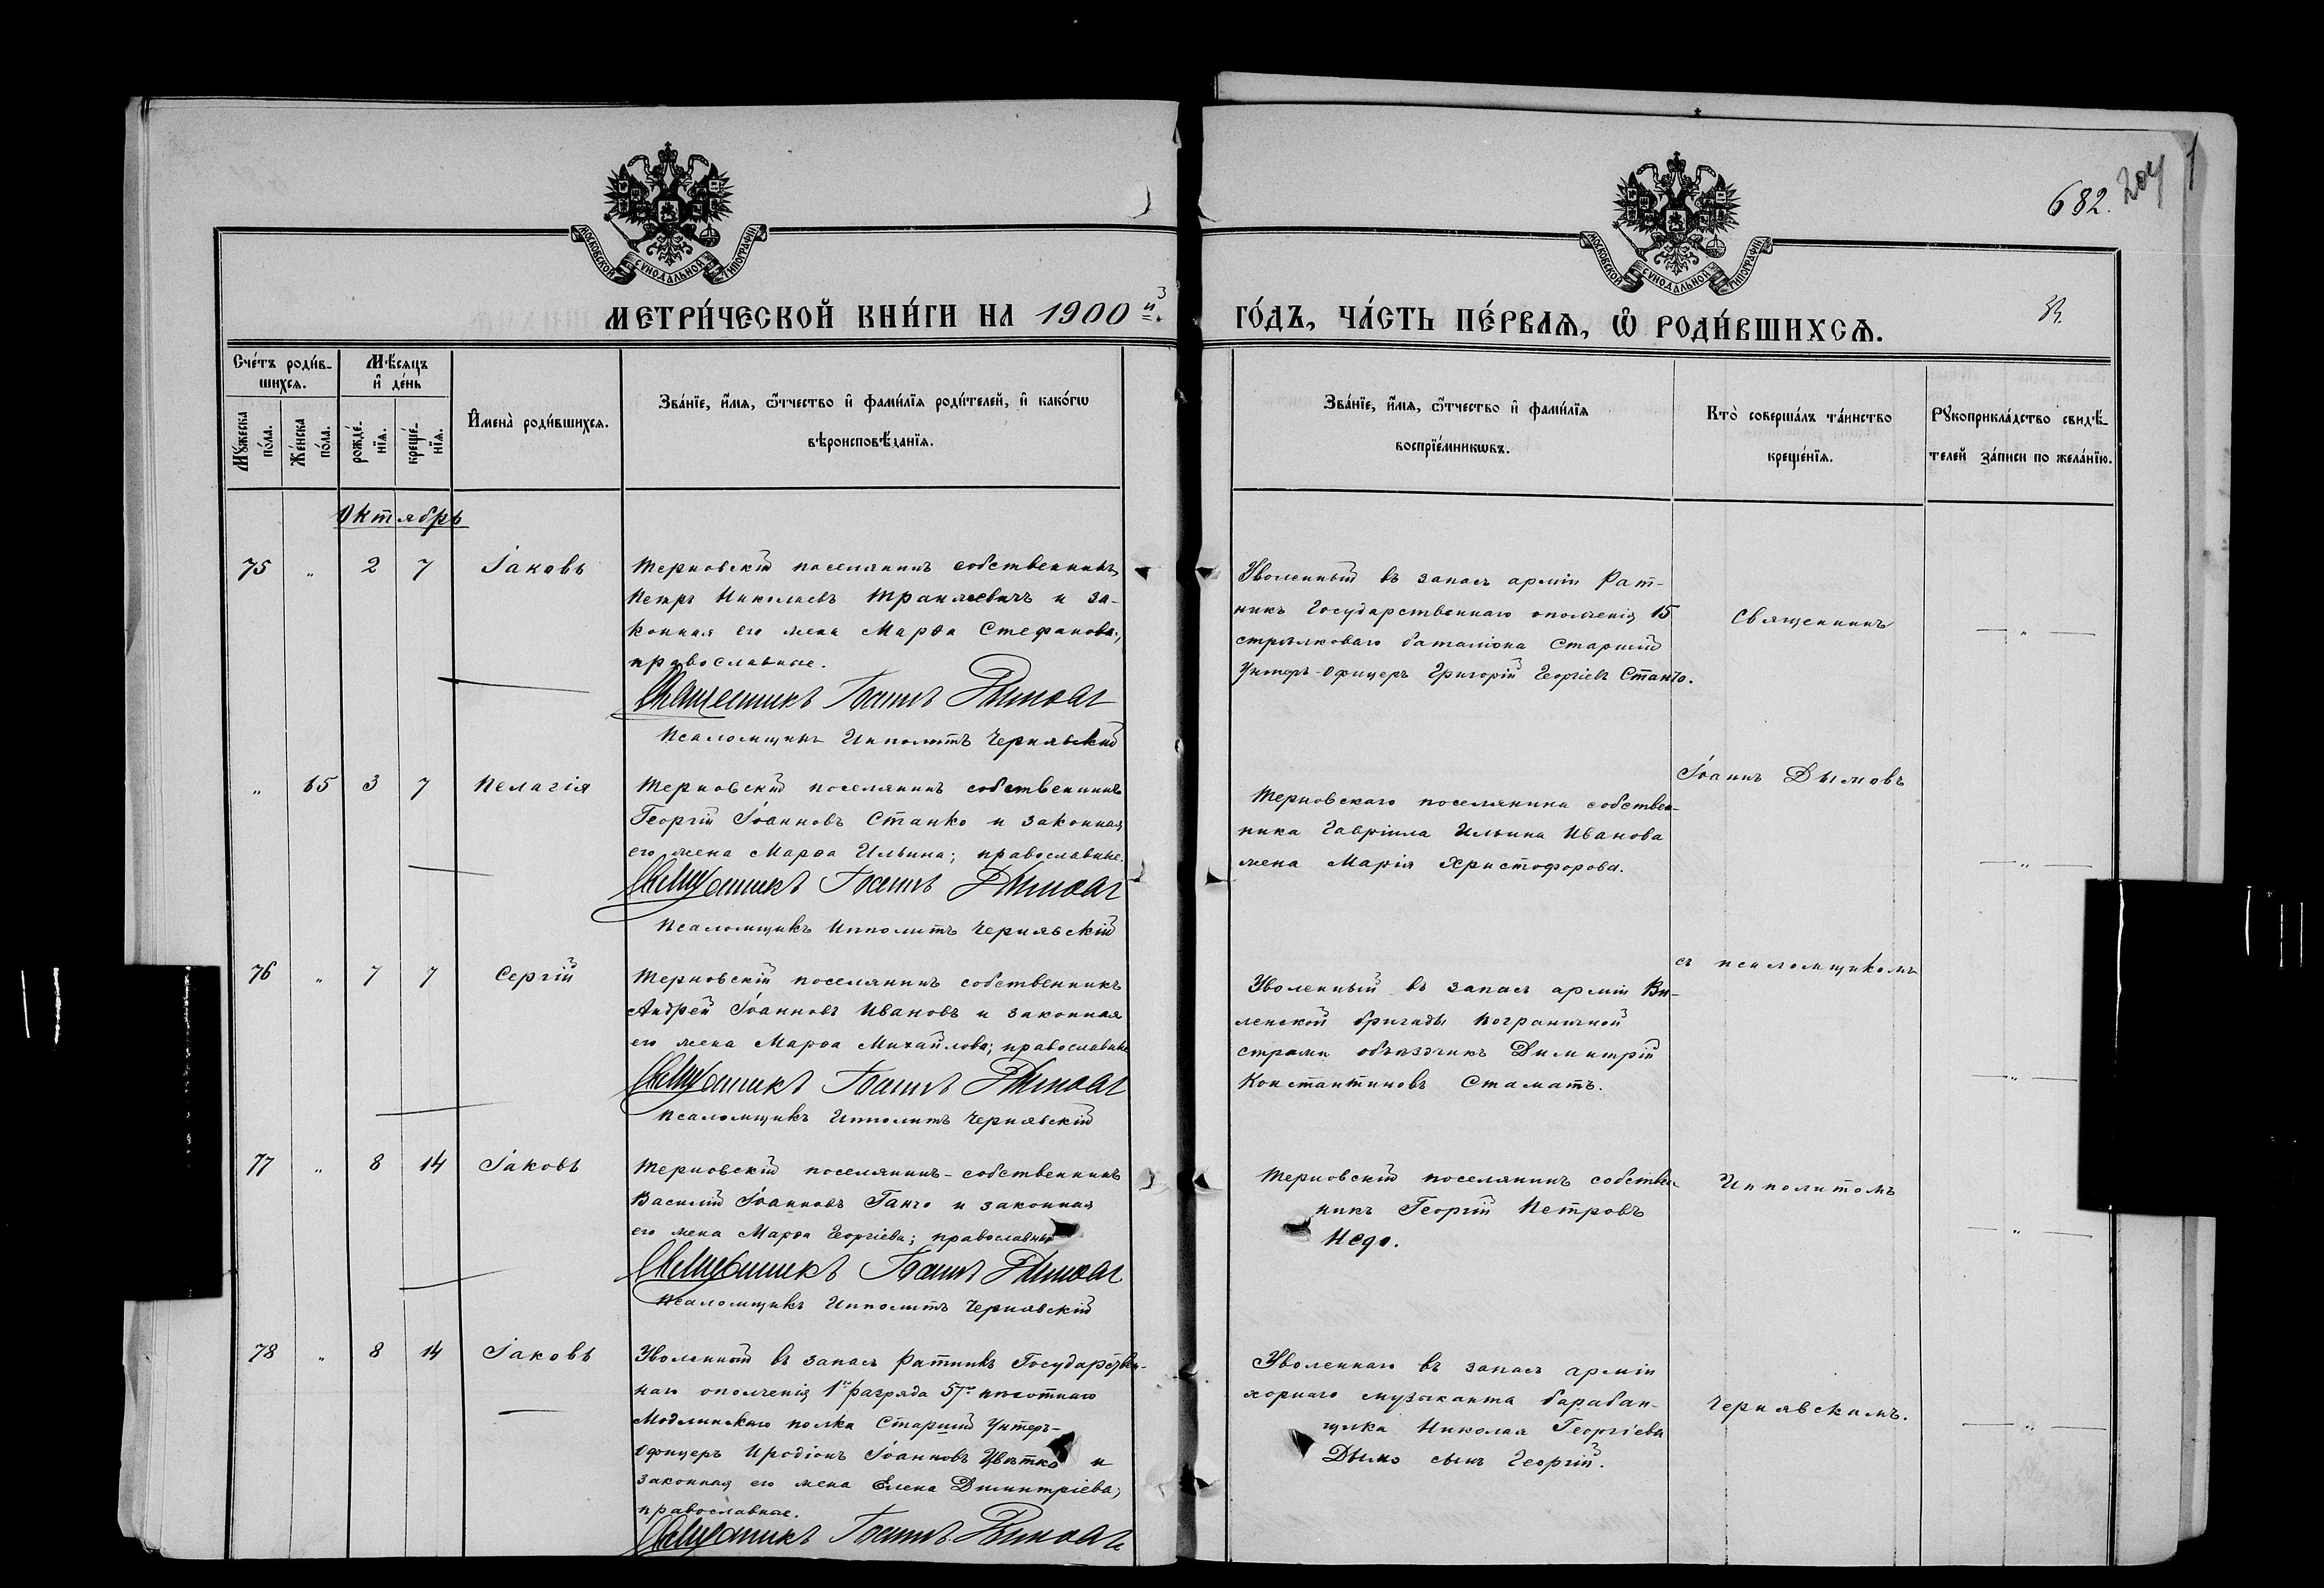 682. 204
МОСКОВСКОЙ СѴНОДАЛЬНОЙ ТИПОГРАФІИ
МОСКОВСКОЙ СѴНОДАЛЬНОЙ ТИПОГРАФІИ
МЕТРИ́ЧЕСКОЙ КНИ́ГИ НА 1900 й.
ГО́ДЪ, ЧА́СТЬ ПЕ́РВАѦ, Ѽ РОДИ́ВШИХСѦ.
Сче́тъ роди́в-
шихсѧ.
Мꙋ́жеска по́ла.
Же́нска по́ла.
Мѣ́сѧцъ
и҆ де́нь
рожде́нїѧ.
креще́нїѧ.
И҆мена̀ роди́вшихсѧ.
Зва́нїе, и҆́мѧ, ѻ҆́тчество и҆ фами́лїѧ роди́телей, и҆ како́гѡ
вѣроисповѣ́данїѧ.
Зва́нїе, и҆́мѧ, ѻ҆́тчество и҆ фами́лїѧ
воспрїе́мникѡвъ.
Кто̀ соверша́лъ та́инство
креще́нїѧ.
Рꙋкоприкла́дство свидѣ́-
телей за́писи по жела́нїю.
Октябрь
75 " 2 7 Іаковъ
Терновскій поселянинъ собственникъ
Петръ Николаевъ и за-
конная его жена Марѳа Стефанова;
православные.
Священникъ Іоаннъ Дымовъ
Псаломщикъ Ипполитъ Чернявскій
Уволенный въ запасъ арміи Рат-
никъ Государственнаго ополченія 15
стрѣлковаго баталіона Старшій
Унтеръ-Офицеръ Григорій Георгіевъ Станчо.
Священникъ
"
" 65 3 7 Пелагія
Терновскій поселянинъ собственникъ
Георгій Іоанновъ Станко и законная
его жена Марѳа Ильина; православные.
Священникъ Іоаннъ Дымовъ
Псаломщикъ Ипполитъ Чернявскій
Терновскаго поселянина собствен-
ника Гавріила Ильина Иванова
жена Марія Христофорова.
Іоаннъ Дымовъ
"
76 " 7 7 Сергій
Терновскій поселянинъ собственникъ
Андрей Іоанновъ Ивановъ и законная
его жена Марѳа Михайлова; православные
Священникъ Іоаннъ Дымовъ
Псаломщикъ Ипполитъ Чернявскій
Уволенный въ запасъ арміи Ви-
ленской бригады пограничной
стражи объѣздчикъ Димитрій
Константиновъ Стаматъ.
съ псаломщикомъ
"
77 " 8 14 Іаковъ
Терновскій поселянинъ-собственникъ
Василій Іоанновъ Ганчо и законная
его жена Марѳа Георгіева; православные
Священникъ Іоаннъ Дымовъ
Псаломщикъ Ипполитъ Чернявскій
Терновскій поселянинъ собствен-
никъ Георгій Петровъ
Недо.
Ипполитомъ
"
78 " 8 14 Іаковъ
Уволенный въ запасъ Ратникъ Государствен-
наго ополченія 1го разряда 57го пѣхотнаго
Модлинскаго полка Старшій Унтеръ-
Офицеръ Иродіонъ Іоанновъ Цвѣтко и
законная его жена Елена Димитріева;
православные.
Священникъ Іоаннъ Дымовъ
Уволеннаго въ запасъ арміи
хорнаго музыканта барабан-
щика Николая Георгіева
Дымо сынъ Георгій.
Чернявскимъ.
"